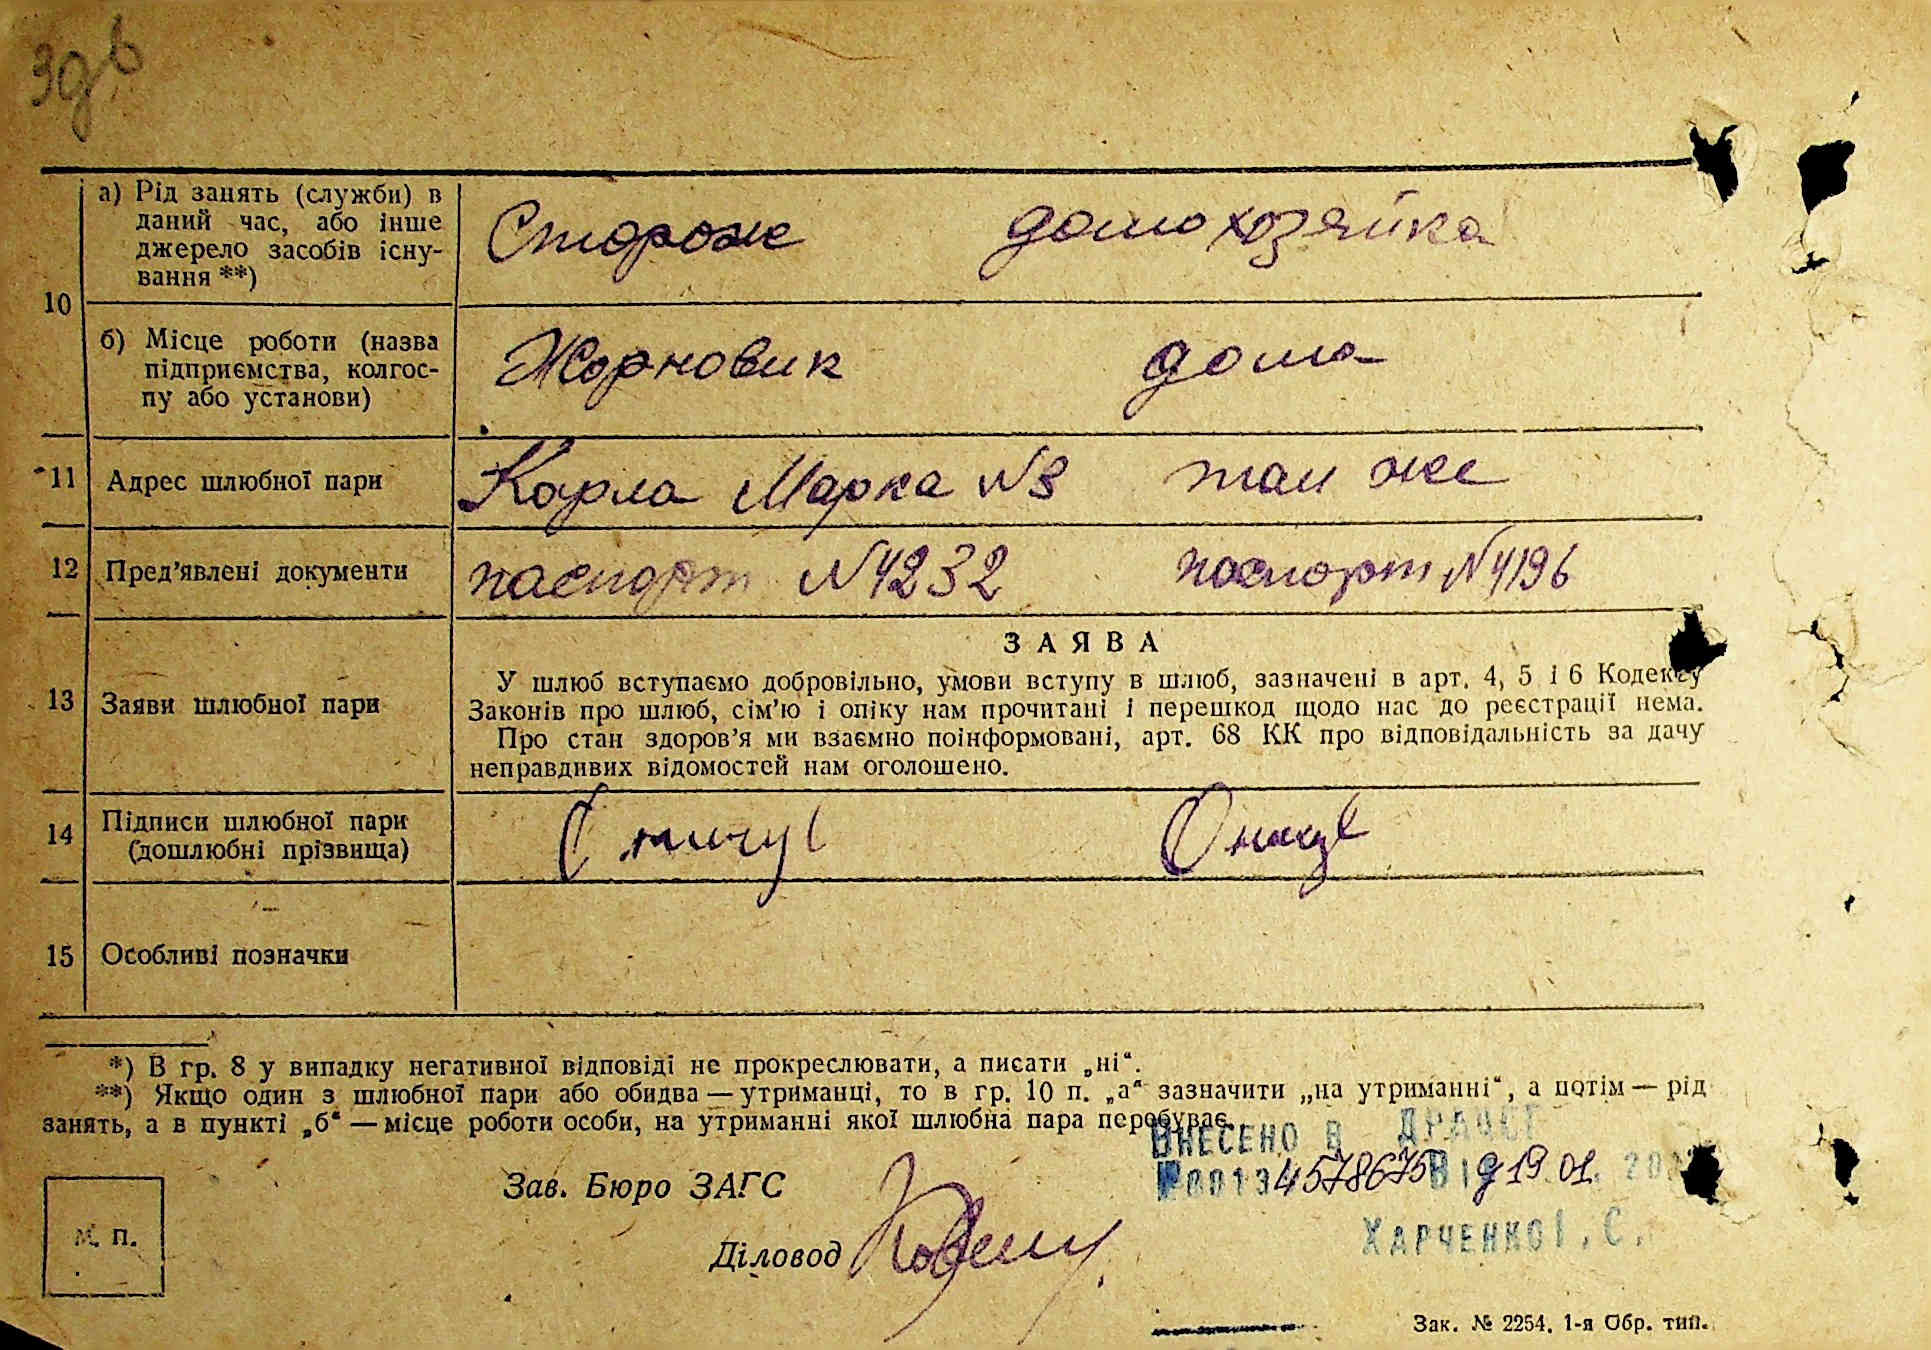 а) Рід занять (служби) в
даний час, або інше
джерело засобів існу-
вання **)
Сторож домохозяйка
10
б) Місце роботи (назва
підприємства, колгос-
пу або установи)
Жорновик дома
11 Адрес шлюбної пари Карла Маркса №3 там же
12 Пред’явлені документи паспорт №4232 паспорт №4196
ЗАЯВА
13 Заяви шлюбної пари
У шлюб вступаємо добровільно, умови вступу в шлюб, зазначені в арт. 4, 5 і 6 Кодексу
Законів про шлюб, сім’ю і опіку нам прочитані і перешкод щодо нас до реєстрації нема.
Про стан здоров’я ми взаємно поінформовані, арт. 68 КК про відповідальність за дачу
неправдивих відомостей нам оголошено.
14 Підписи шлюбної пари
(дошлюбні прізвища)
15 Особливі позначки
*) В гр. 8 у випадку негативної відповіді не прокреслювати, а писати „ні“.
**) Якщо один з шлюбної пари або обидва — утриманці, то в гр. 10 п. „а“ зазначити „на утриманні“, а потім — рід
занять, а в пункті „б“ — місце роботи особи, на утриманні якої шлюбна пара перебуває.
ВНЕСЕНО В ДРАЦСГ
Зав. Бюро ЗАГС
№00134578675 ВІД 19.01.
ХАРЧЕНКО І. С.
М. П.
Діловод
Зак. № 2254. 1-я Обр. тип.